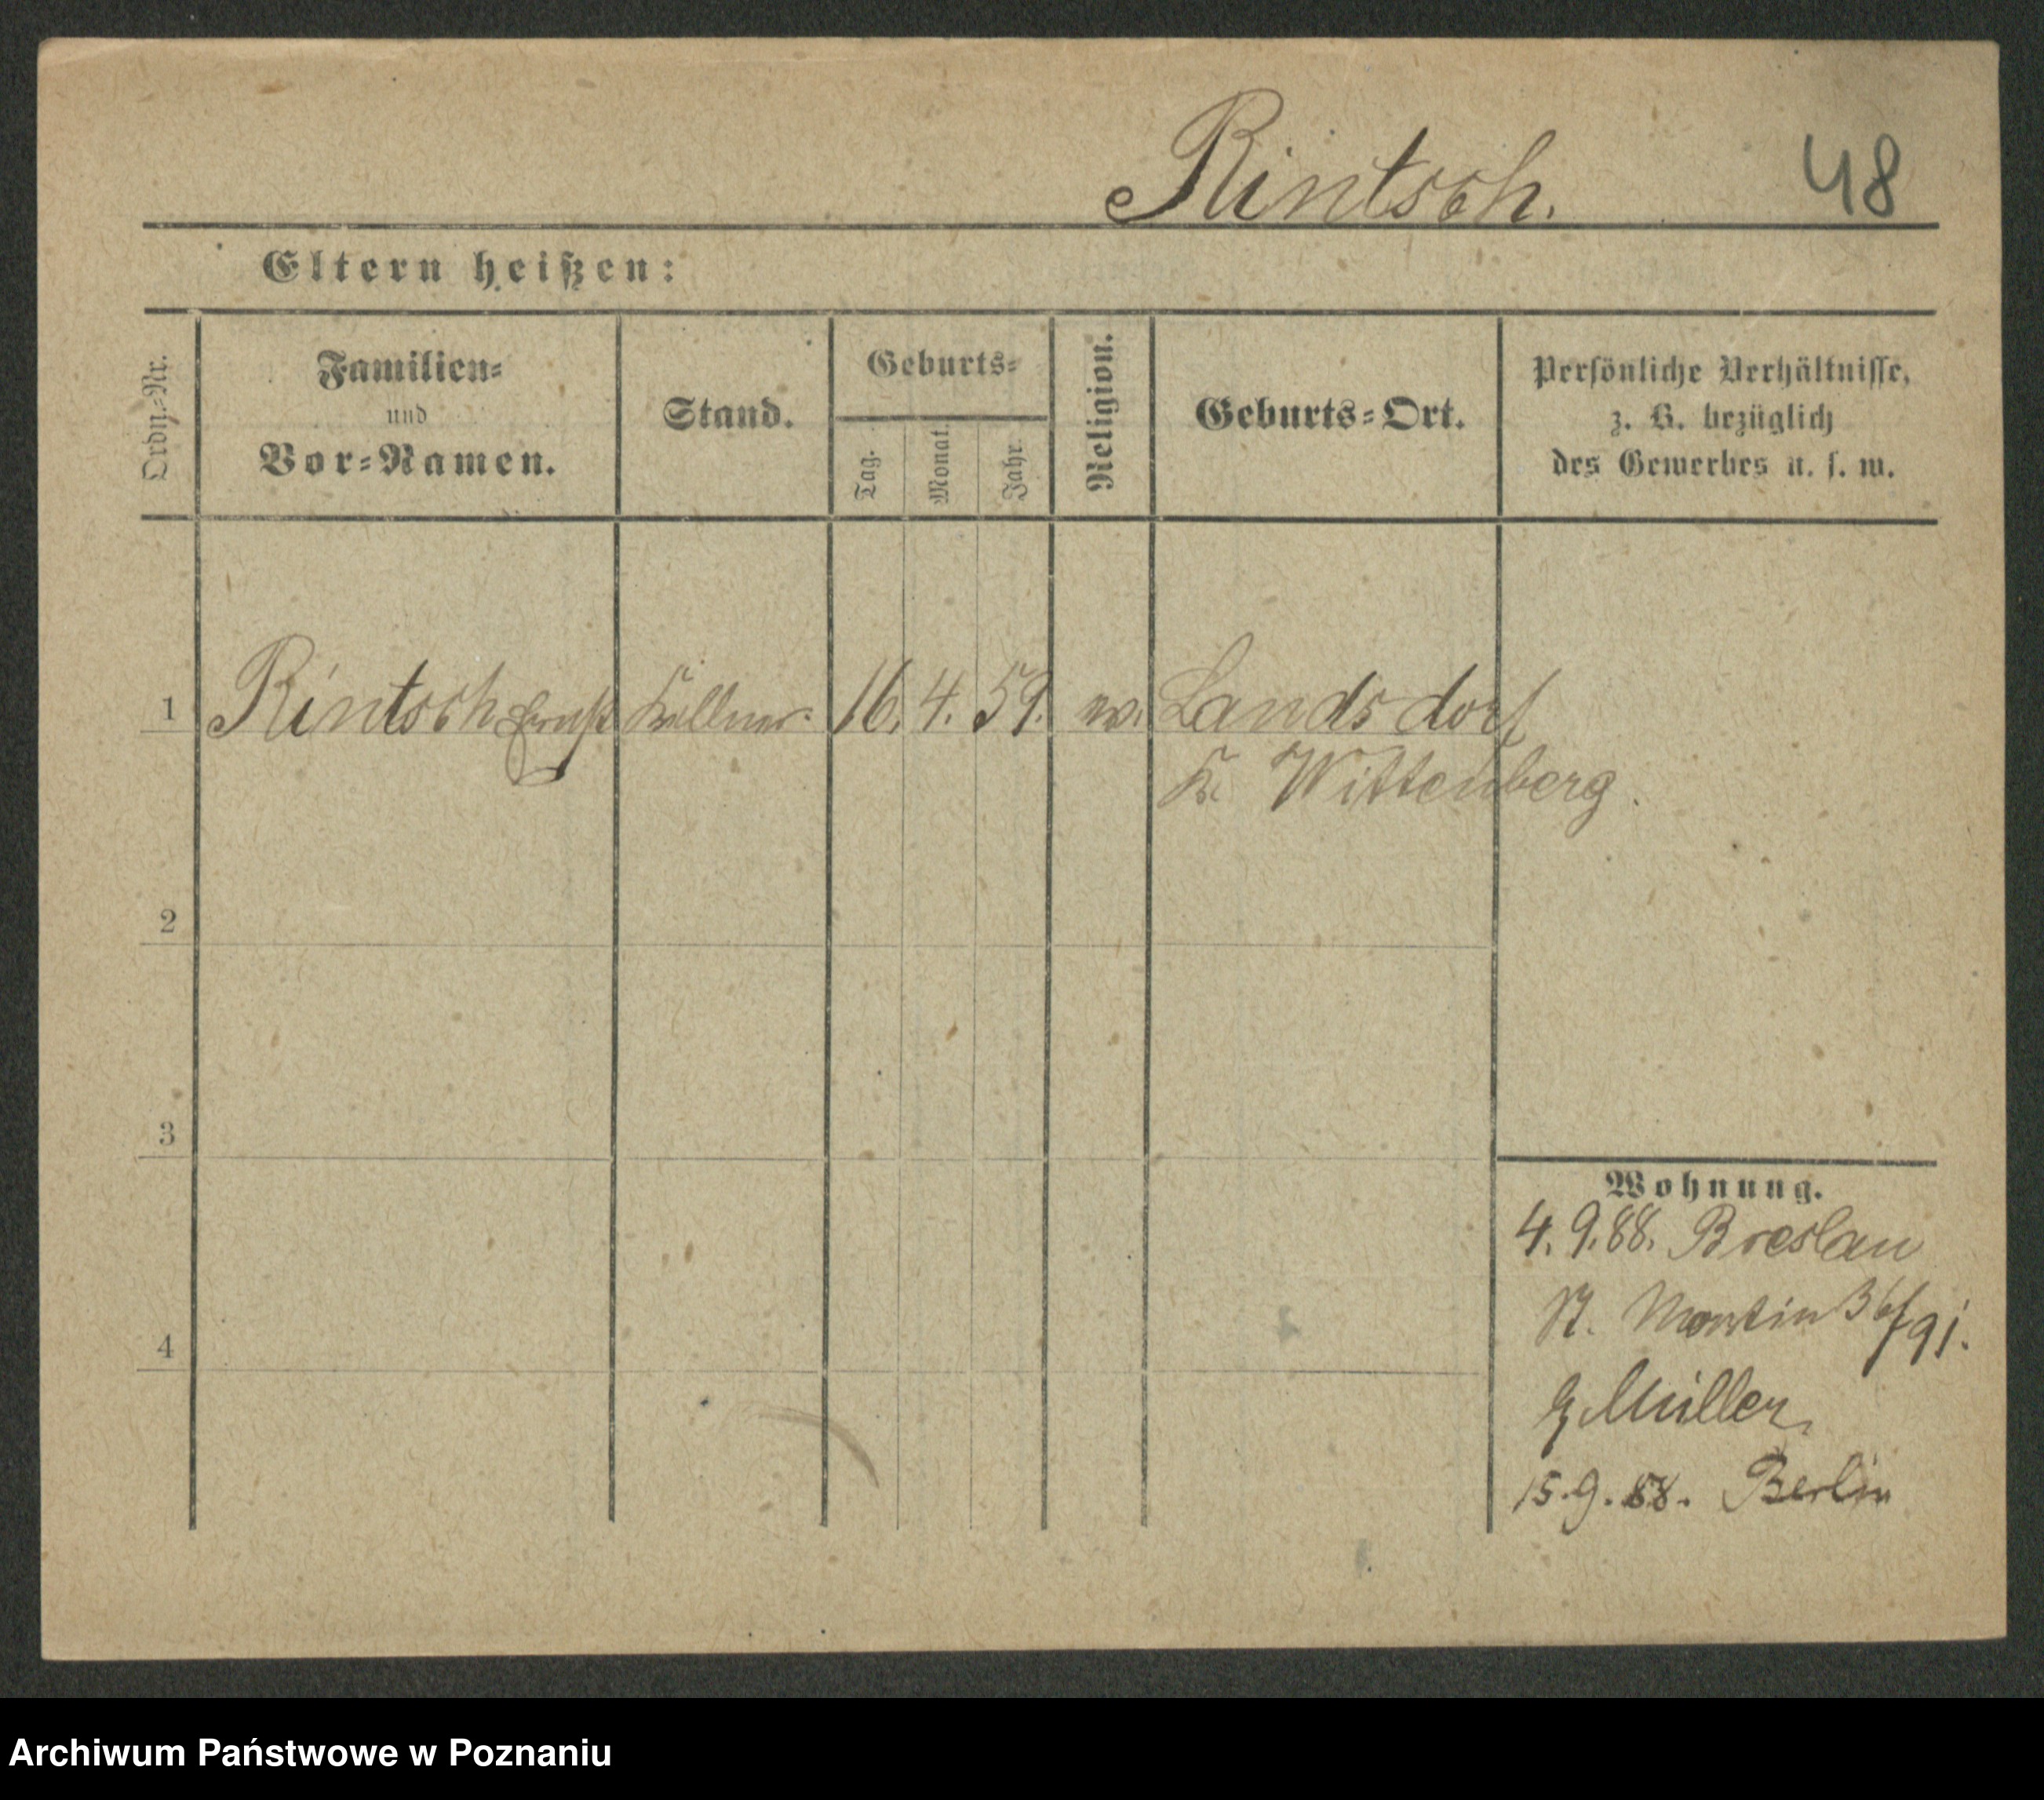 Rintsch. 48
Eltern heißen:
Ordn.-Nr.
Familien-
und
Vor-Namen.
Stand.
Geburts-
Tag.
Monat.
Jahr.
Religion.
Geburts-Ort.
Persönliche Verhältnisse,
z. B. bezüglich
des Gewerbes u. s. w.
1 Rintsch Ernst Kellner. 16. 4. 59. ev. Landsdorf
Kr. Wittenberg.
2
3
4
Wohnung.
4. 9. 88. Breslau
St. Martin 36/91.
Müller
15. 9. 88. Berlin
Archiwum Państwowe w Poznaniu